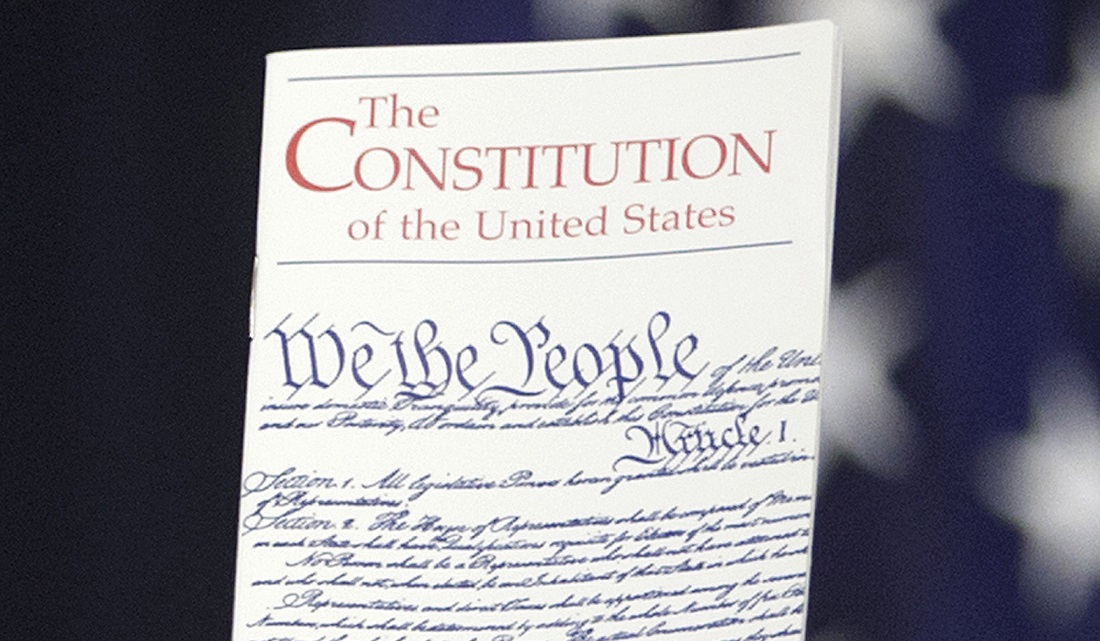 The
CONSTITUTION
of the United States
We the People of the Uni
insure domestic Tranquility, provide for the common defence, promo
and our Posterity, do ordain and establish this Constitution for the U
Article. I.
Section. 1. All legislative Powers herein granted shall be vested in
of Representatives.
Section. 2. The House of Representatives shall be composed of Mem
in each State shall have Qualifications requisite for Electors of the most numerou
No Person shall be a Representative who shall not have attained t
and who shall not, when elected, be an Inhabitant of that State in which he sha
Representatives and direct Taxes shall be apportioned among the severa
Numbers, which shall be determined by adding to the whole Number of free